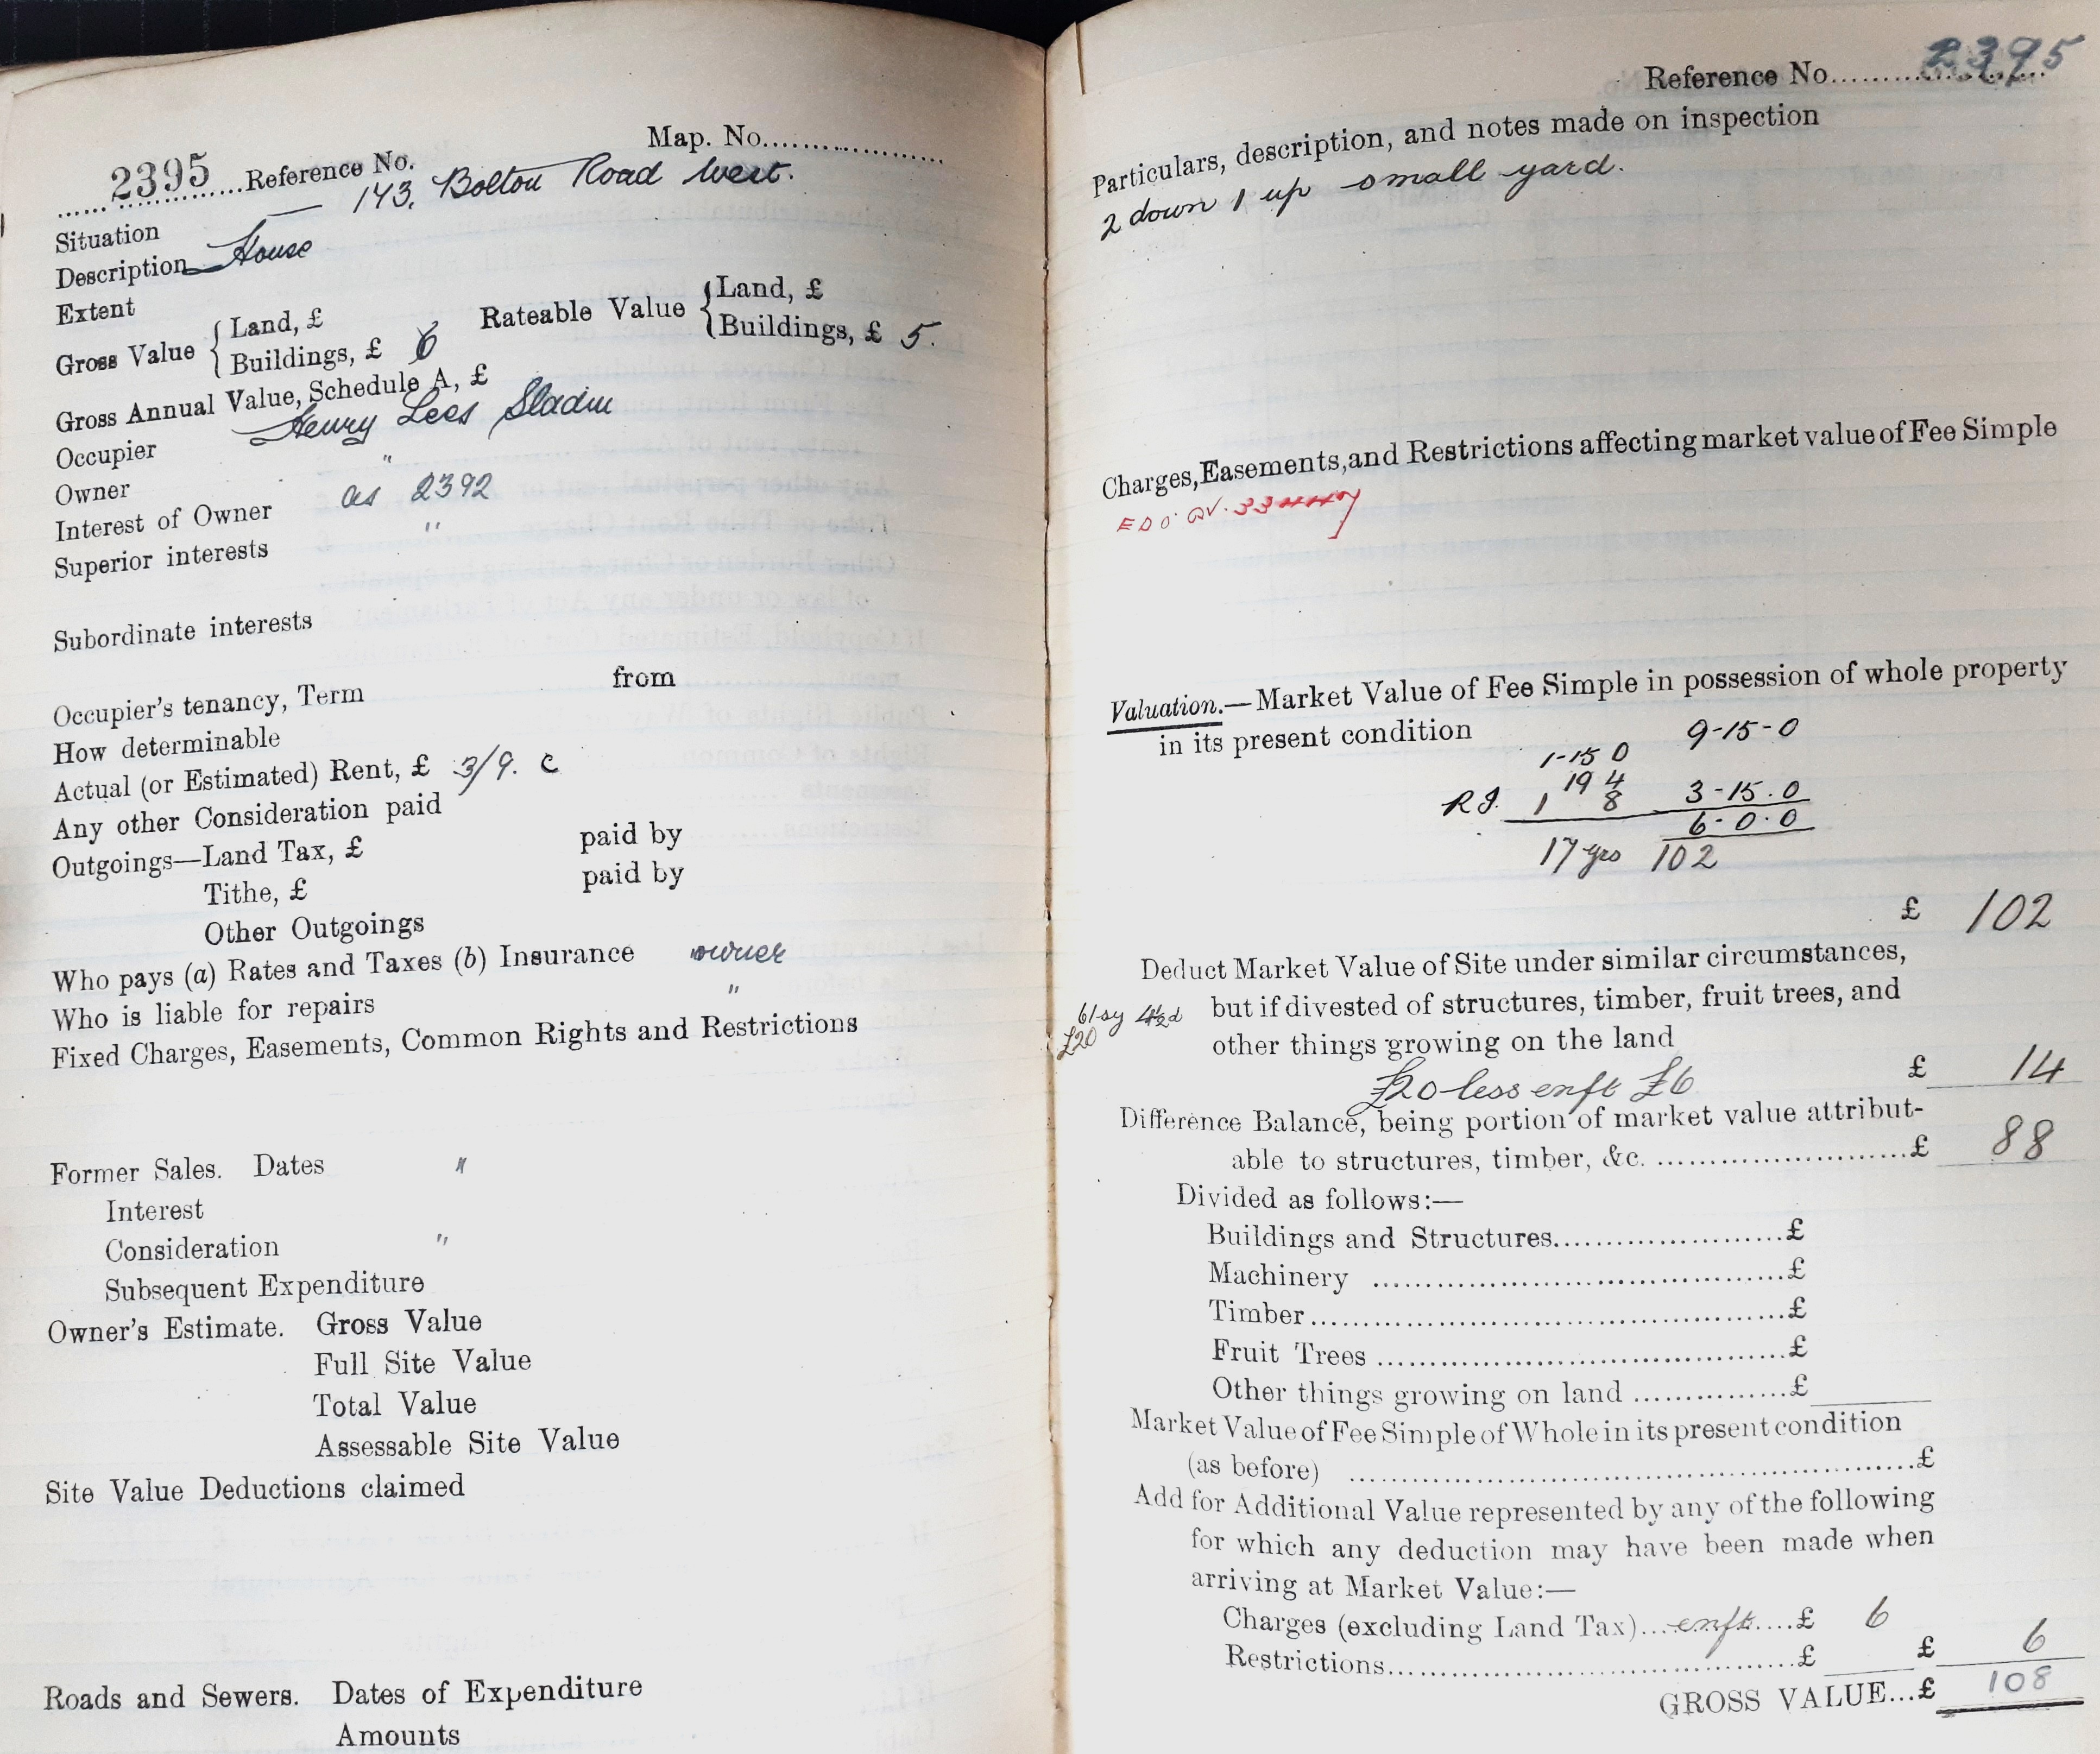 Map. No....................
2395 Reference No.
Situation — 143, Bolton Road West.
Description House
Extent
Gross Value { Land, £
Buildings, £ 6
Rateable Value { Land, £
Buildings, £ 5.
Gross Annual Value, Schedule A, £
Occupier Henry Lees Sladin
Owner "
Interest of Owner as 2392
Superior interests "
Subordinate interests
Occupier's tenancy, Term from
How determinable
Actual (or Estimated) Rent, £ 3/9. c
Any other Consideration paid
Outgoings—Land Tax, £ paid by
Tithe, £ paid by
Other Outgoings
Who pays (a) Rates and Taxes (b) Insurance owner
Who is liable for repairs "
Fixed Charges, Easements, Common Rights and Restrictions
Former Sales. Dates "
Interest
Consideration "
Subsequent Expenditure
Owner's Estimate. Gross Value
Full Site Value
Total Value
Assessable Site Value
Site Value Deductions claimed
Roads and Sewers. Dates of Expenditure
Amounts
Reference No. 2395
Particulars, description, and notes made on inspection
2 down 1 up small yard.
Charges, Easements, and Restrictions affecting market value of Fee Simple
Valuation.—Market Value of Fee Simple in possession of whole property
in its present condition
9-15-0
1-15 0
19 4
R I. 1 8 3-15.0
6-0-0
17 yrs 102
£ 102
Deduct Market Value of Site under similar circumstances,
but if divested of structures, timber, fruit trees, and
other things growing on the land
61 sy 4½d
£20
£20 less enft £6
£ 14
Difference Balance, being portion of market value attribut-
able to structures, timber, &c. ........................£ 88
Divided as follows:—
Buildings and Structures......................£
Machinery ......................................£
Timber...............................................£
Fruit Trees ......................................£
Other things growing on land ..............£
Market Value of Fee Simple of Whole in its present condition
(as before) ......................................................£
Add for Additional Value represented by any of the following
for which any deduction may have been made when
arriving at Market Value:—
Charges (excluding Land Tax)...enft....£ 6
Restrictions.......................................£ £ 6
GROSS VALUE...£ 108